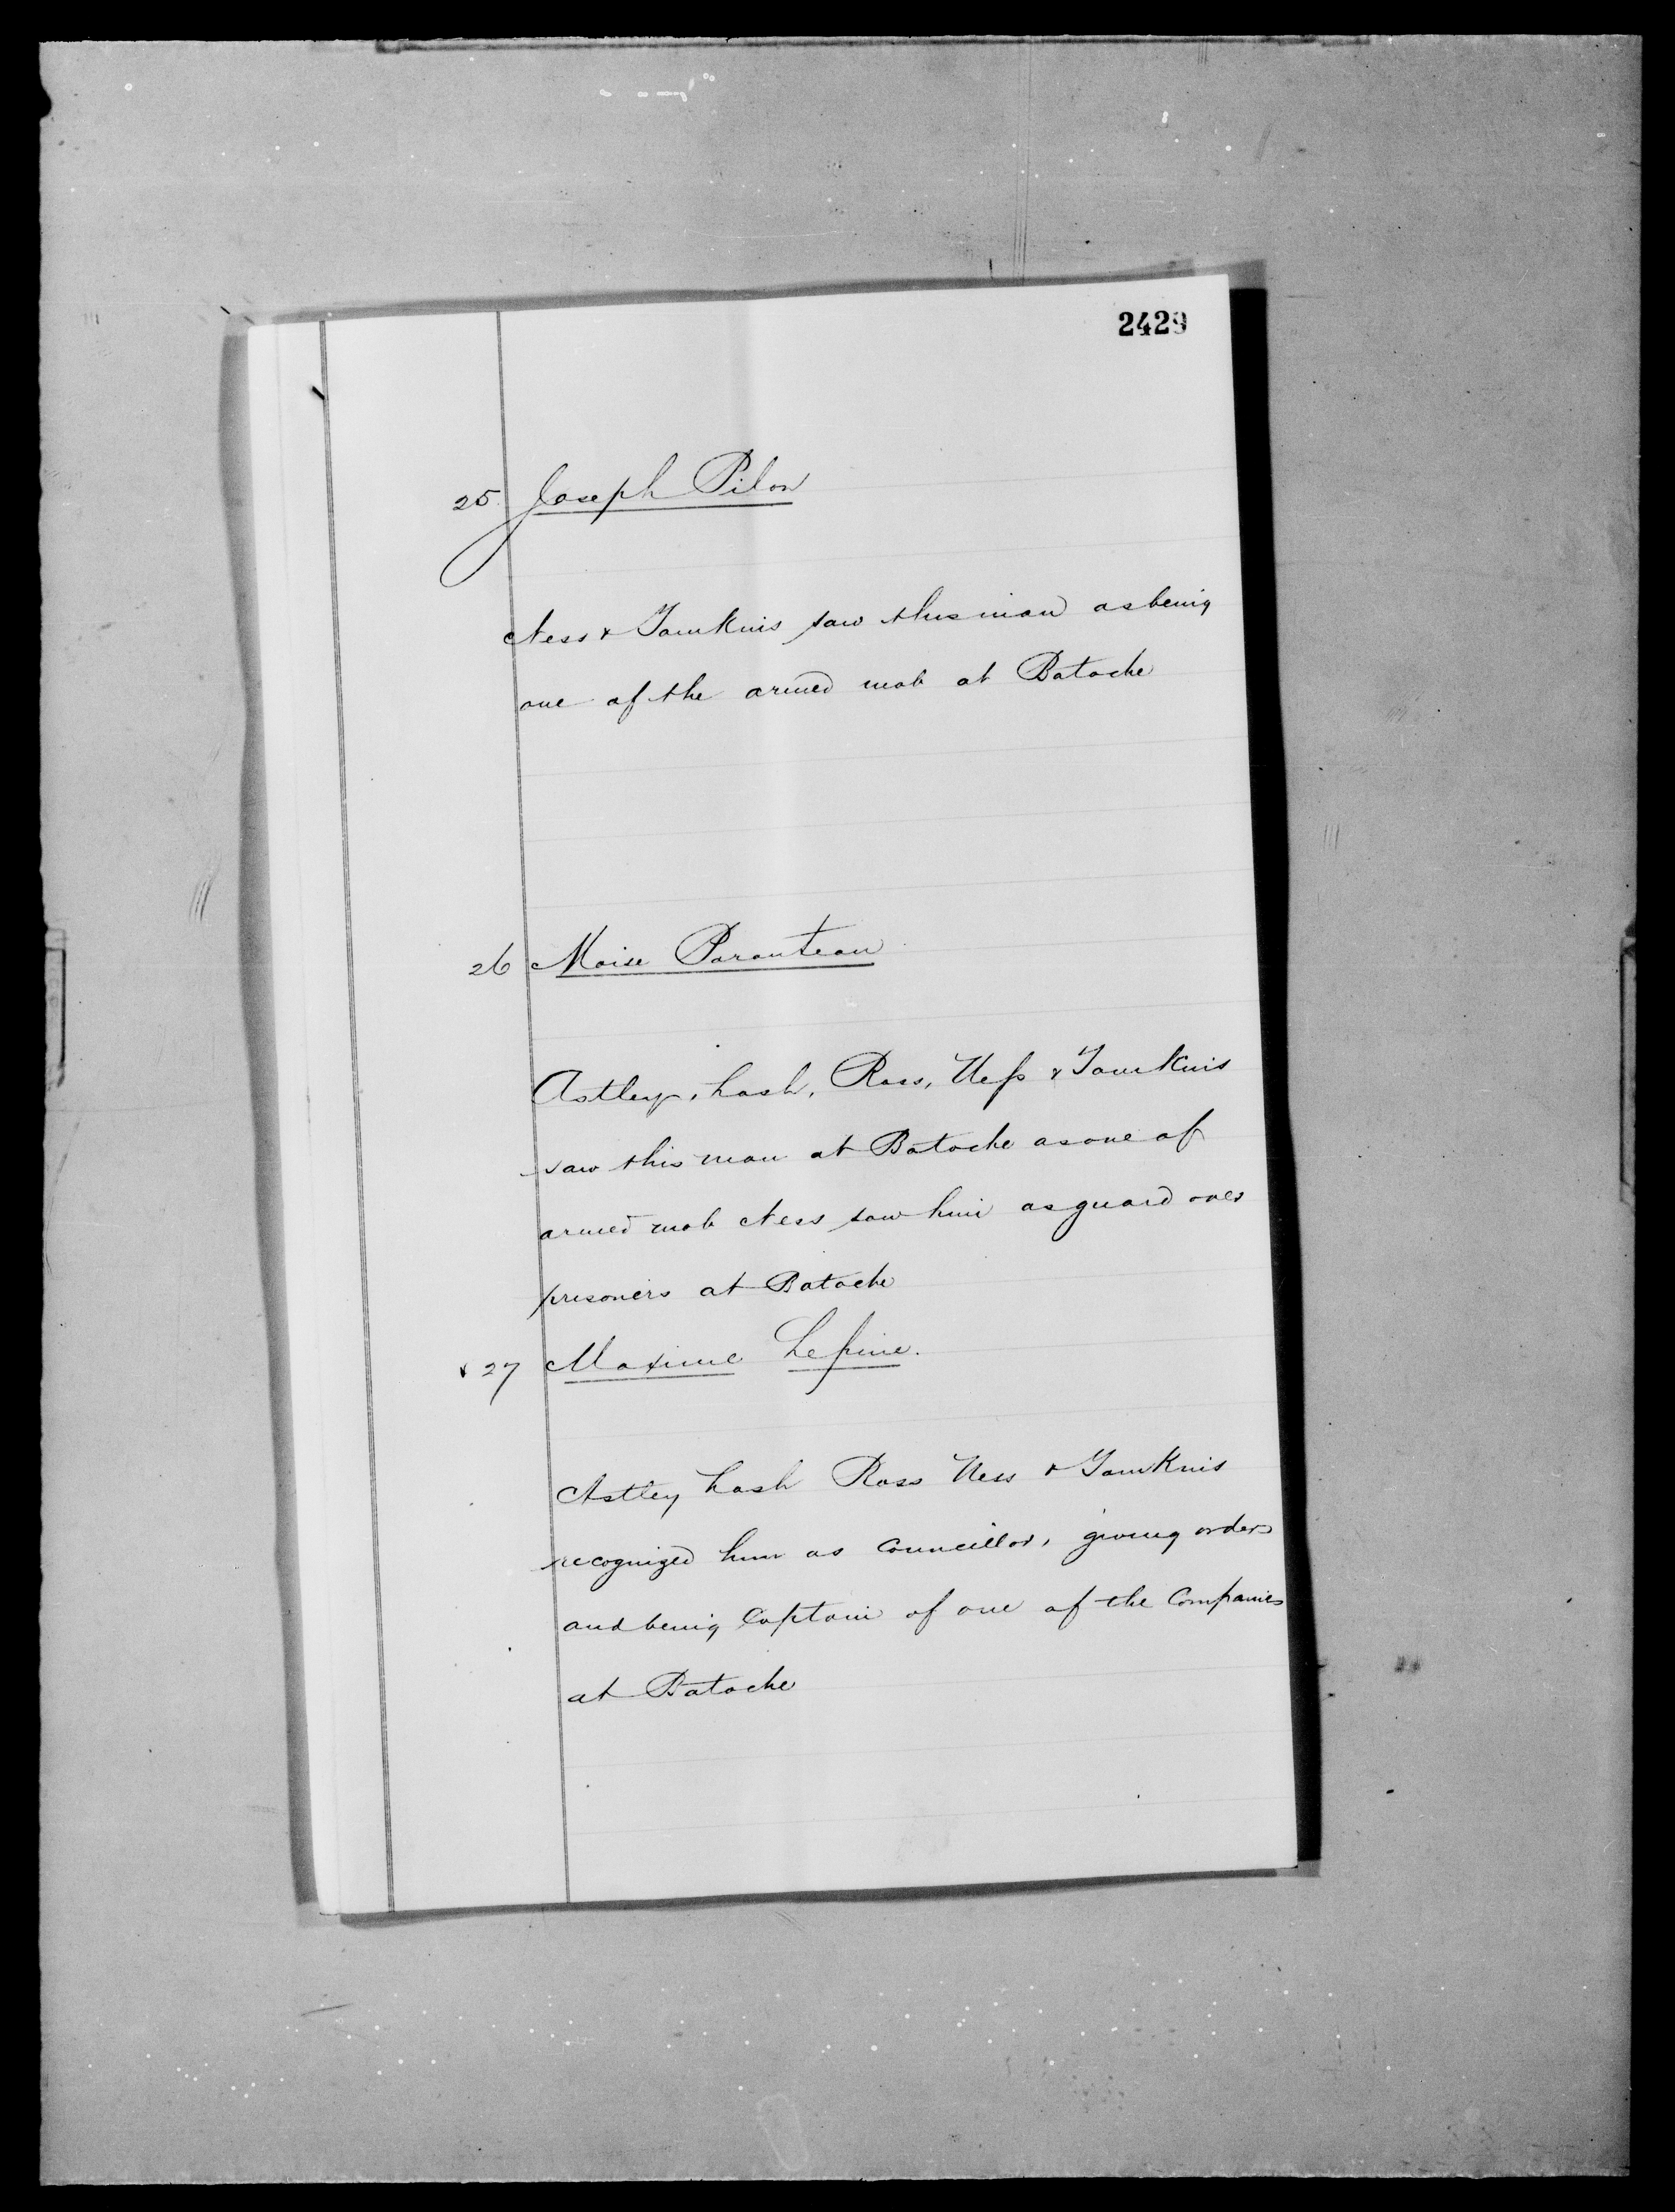 2429
25. Joseph Pilon
Ness & Tomkins saw this man as being
one of the armed mob at Batoche
26 Moise Paranteau
Astley, Lash, Ross, Ness & Tomkins
saw this man at Batoche as one of
armed mob Ness saw him as guard over
prisoners at Batoche
x 27 Maxime Lepine.
Astley Lash Ross Ness & Tomkins
recognized him as Councillor, giving orders
and being Captain of one of the Companies
at Batoche